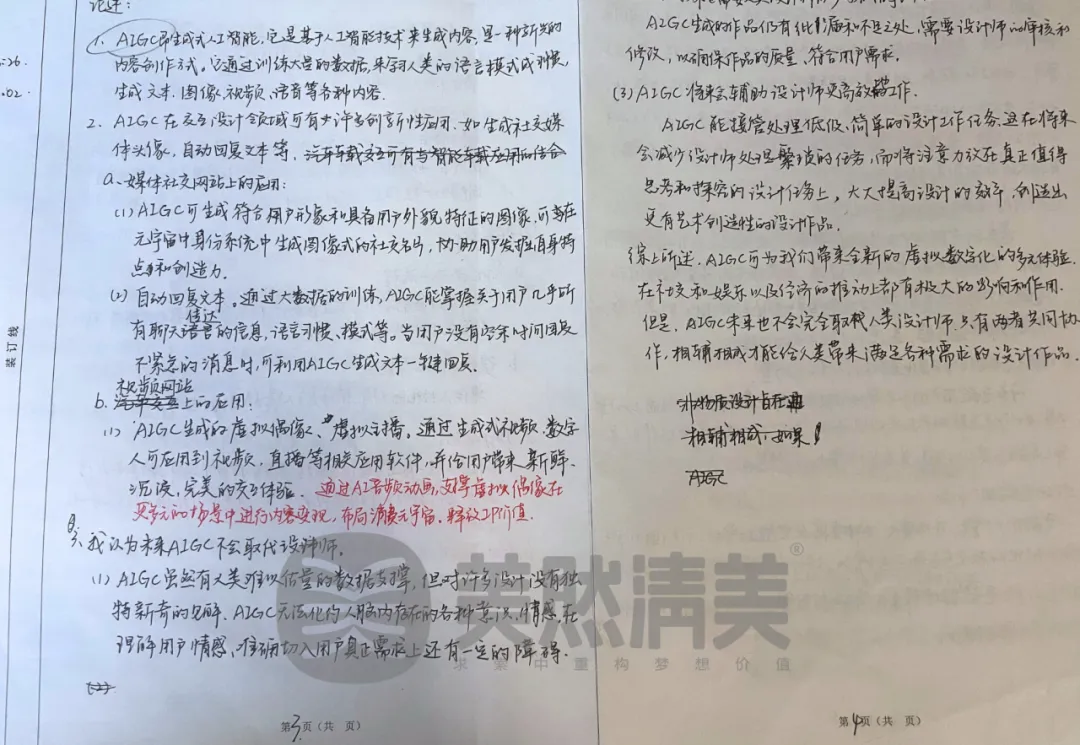 论述:
1. AIGC即生成式人工智能,它是基于人工智能技术来生成内容,是一种新兴的
内容创作方式。它通过训练大量的数据,来学习人类的语言模式或习惯,
生成文本、图像、视频、语音等各种内容.
2. AIGC在交互设计领域可有许多创新性应用.如生成社交媒
体头像,自动回复文本等,汽车车载交互可有与智能车载应用的结合
a.媒体社交网站上的应用:
(1) AIGC可生成符合用户形象和具备用户外貌特征的图像,可在
元宇宙中身份系统中生成图像式的社交名片,协助用户发挥自身特
点和创造力.
(2) 自动回复文本。通过大数据的训练,AIGC能掌握关于用户几乎所
有聊天语言信达的信息,语言习惯、模式等。当用户没有空余时间回复
不紧急的消息时,可利用AIGC生成文本一键回复.
视频网站
b.汽车交互上的应用:
(1) AIGC生成的虚拟偶像、虚拟主播。通过生成式视频、数字
人可应用到视频、直播等相关应用软件,并给用户带来新鲜、
沉浸,完美的交互体验. 通过AI音频动画,支撑虚拟偶像在
更多元的场景中进行内容变现,布局消费元宇宙.释放IP价值.
3、我认为未来AIGC不会取代设计师.
(1) AIGC虽然有人类难以估量的数据支撑,但对许多设计没有独
特新奇的见解. AIGC无法化作人脑内存在的各种意识,情感.在
理解用户情感、准确切入用户真正需求上还有一定的障碍.
(2)
第3页(共 页)
AIGC生成的作品仍有纰漏和不足之处,需要设计师的审核和
修改,以确保作品的质量,符合用户需求.
(3) AIGC将来会辅助设计师更高效工作.
AIGC能接管处理低级、简单的设计工作任务.这在将来
会减少设计师处理繁琐的任务,而将注意力放在真正值得
思考和探究的设计任务上,大大提高设计的效率,创造出
更有艺术创造性的设计作品.
综上所述,AIGC可为我们带来全新的虚拟数字化的多元体验.
在社交和娱乐以及经济的推动上都有极大的影响和作用.
但是,AIGC未来也不会完全取代人类设计师.只有两者共同协
作,相辅相成才能给人类带来满足各种需求的设计作品.
非物质设计自在
相辅相成,如果
AIGC
第4页(共 页)
装订线
:26.
.02.
美然清美®
求索中重构梦想价值